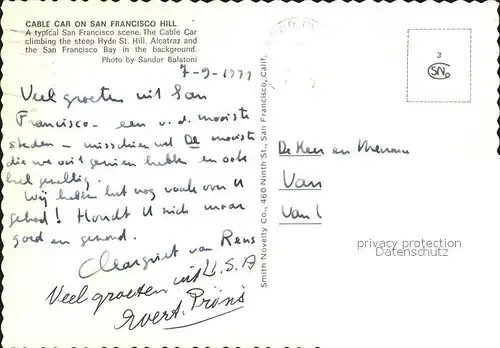 CABLE CAR ON SAN FRANCISCO HILL
A typical San Francisco scene. The Cable Car
climbing the steep Hyde St. Hill, Alcatraz and
the San Francisco Bay in the background.
Photo by Sandor Balatoni
7-9-1971
Veel groeten uit San
Francisco - een v.d. mooiste
steden - misschien wel De mooiste
die we ooit gezien hebben en ook
heel gezellig.
Wij hebben het nog vaak over U
gehad! Houdt U zich maar
goed en gezond.
Margriet van Rens
Veel groeten uit U.S.A
Evert. Prins
Smith Novelty Co., 460 Ninth St., San Francisco, Calif.
3
SN
De Heer en Mevrouw
Van
Van
privacy protection
Datenschutz